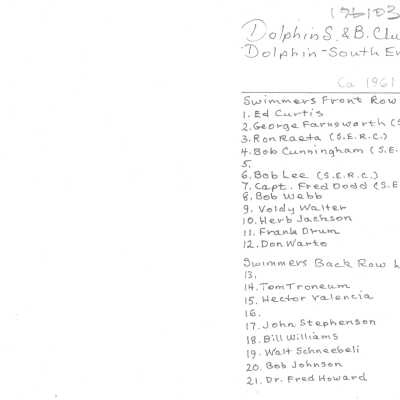 Dolphin S. & B. Clu
Dolphin-South En
Ca 1961
Swimmers Front Row
1. Ed Curtis
2. George Farnsworth (S
3. Ron Raeta (S.E.R.C.)
4. Bob Cunningham (S.E.
5.
6. Bob Lee (S.E.R.C.)
7. Capt. Fred Dodd (S.E
8. Bob Webb
9. Voldy Walter
10. Herb Jackson
11. Frank Drum
12. Don Warto
Swimmers Back Row L
13.
14. Tom Troneum
15. Hector Valencia
16.
17. John Stephenson
18. Bill Williams
19. Walt Schneebeli
20. Bob Johnson
21. Dr. Fred Howard